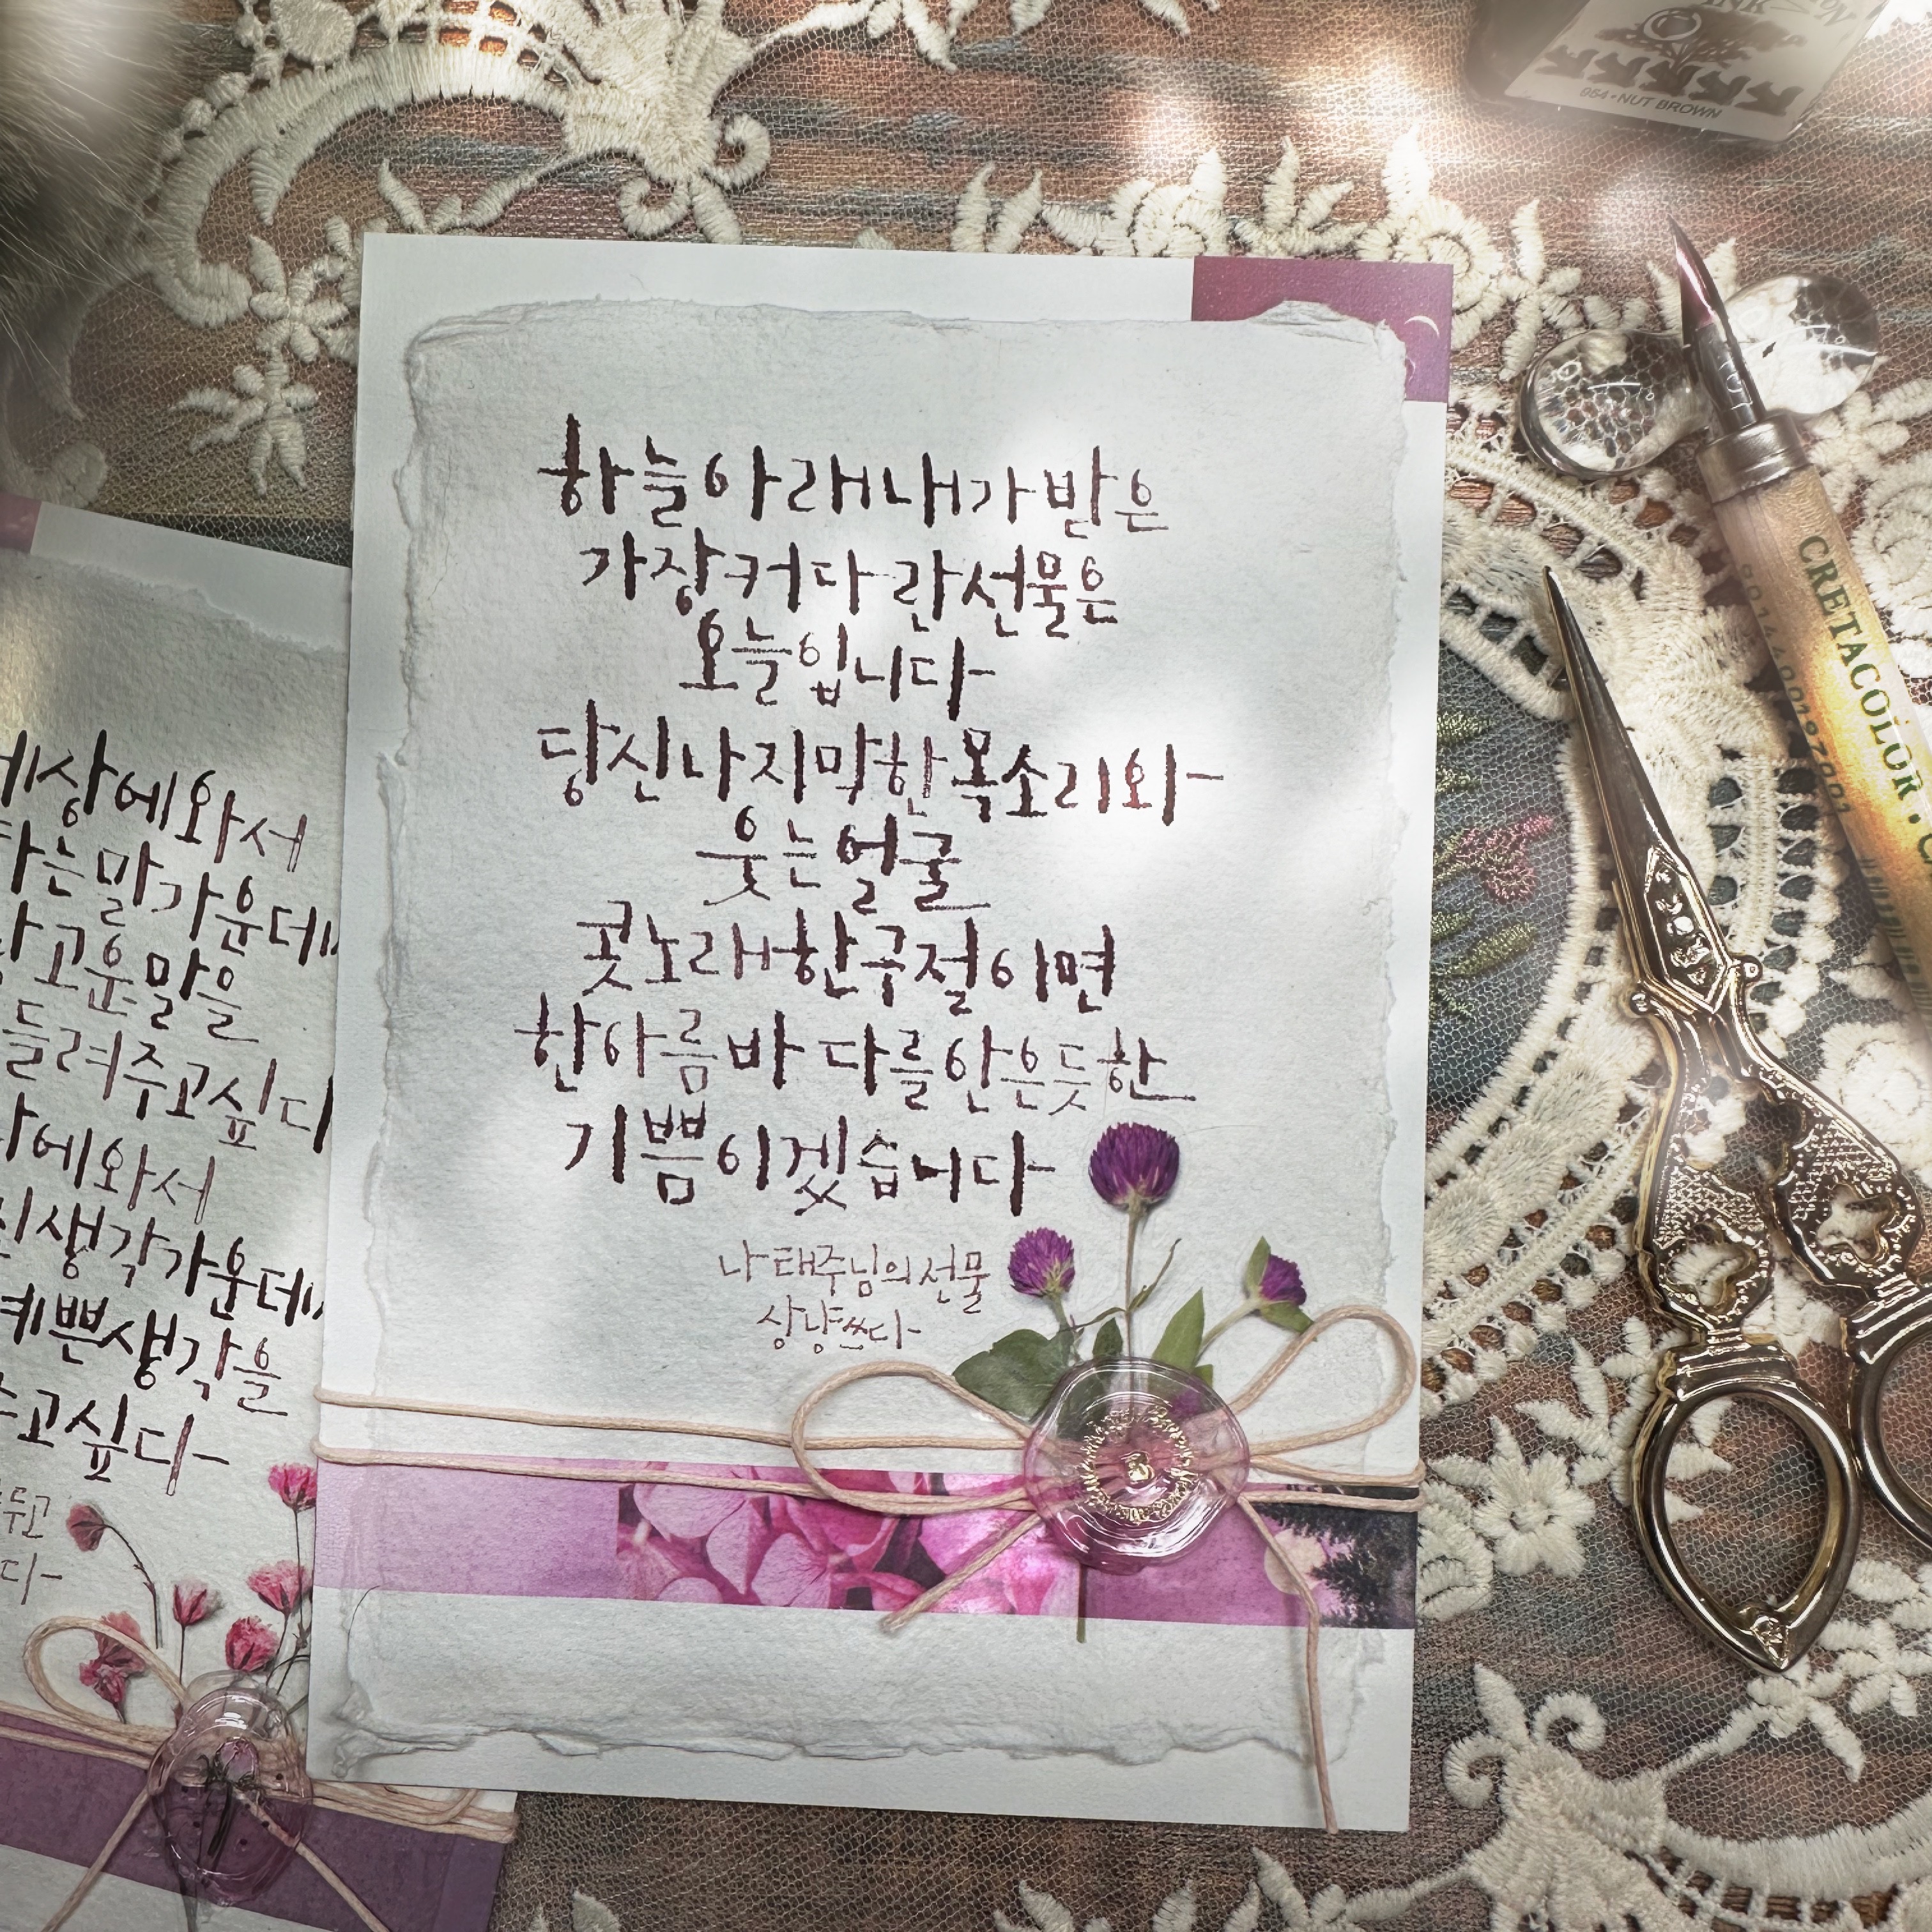 하늘 아래 내가 받은
가장 커다란 선물은
오늘입니다
당신 나지막한 목소리와
웃는 얼굴
콧노래 한 구절이면
한 아름 바다를 안은 듯한
기쁨이겠습니다
나태주님의 선물
상냥쓰다
세상에 와서
하는 말 가운데
고운 말을
들려주고 싶다
에 와서
생각 가운데
예쁜 생각을
주고 싶다
두고
다
INK
954 • NUT BROWN
CRETACOLOR •